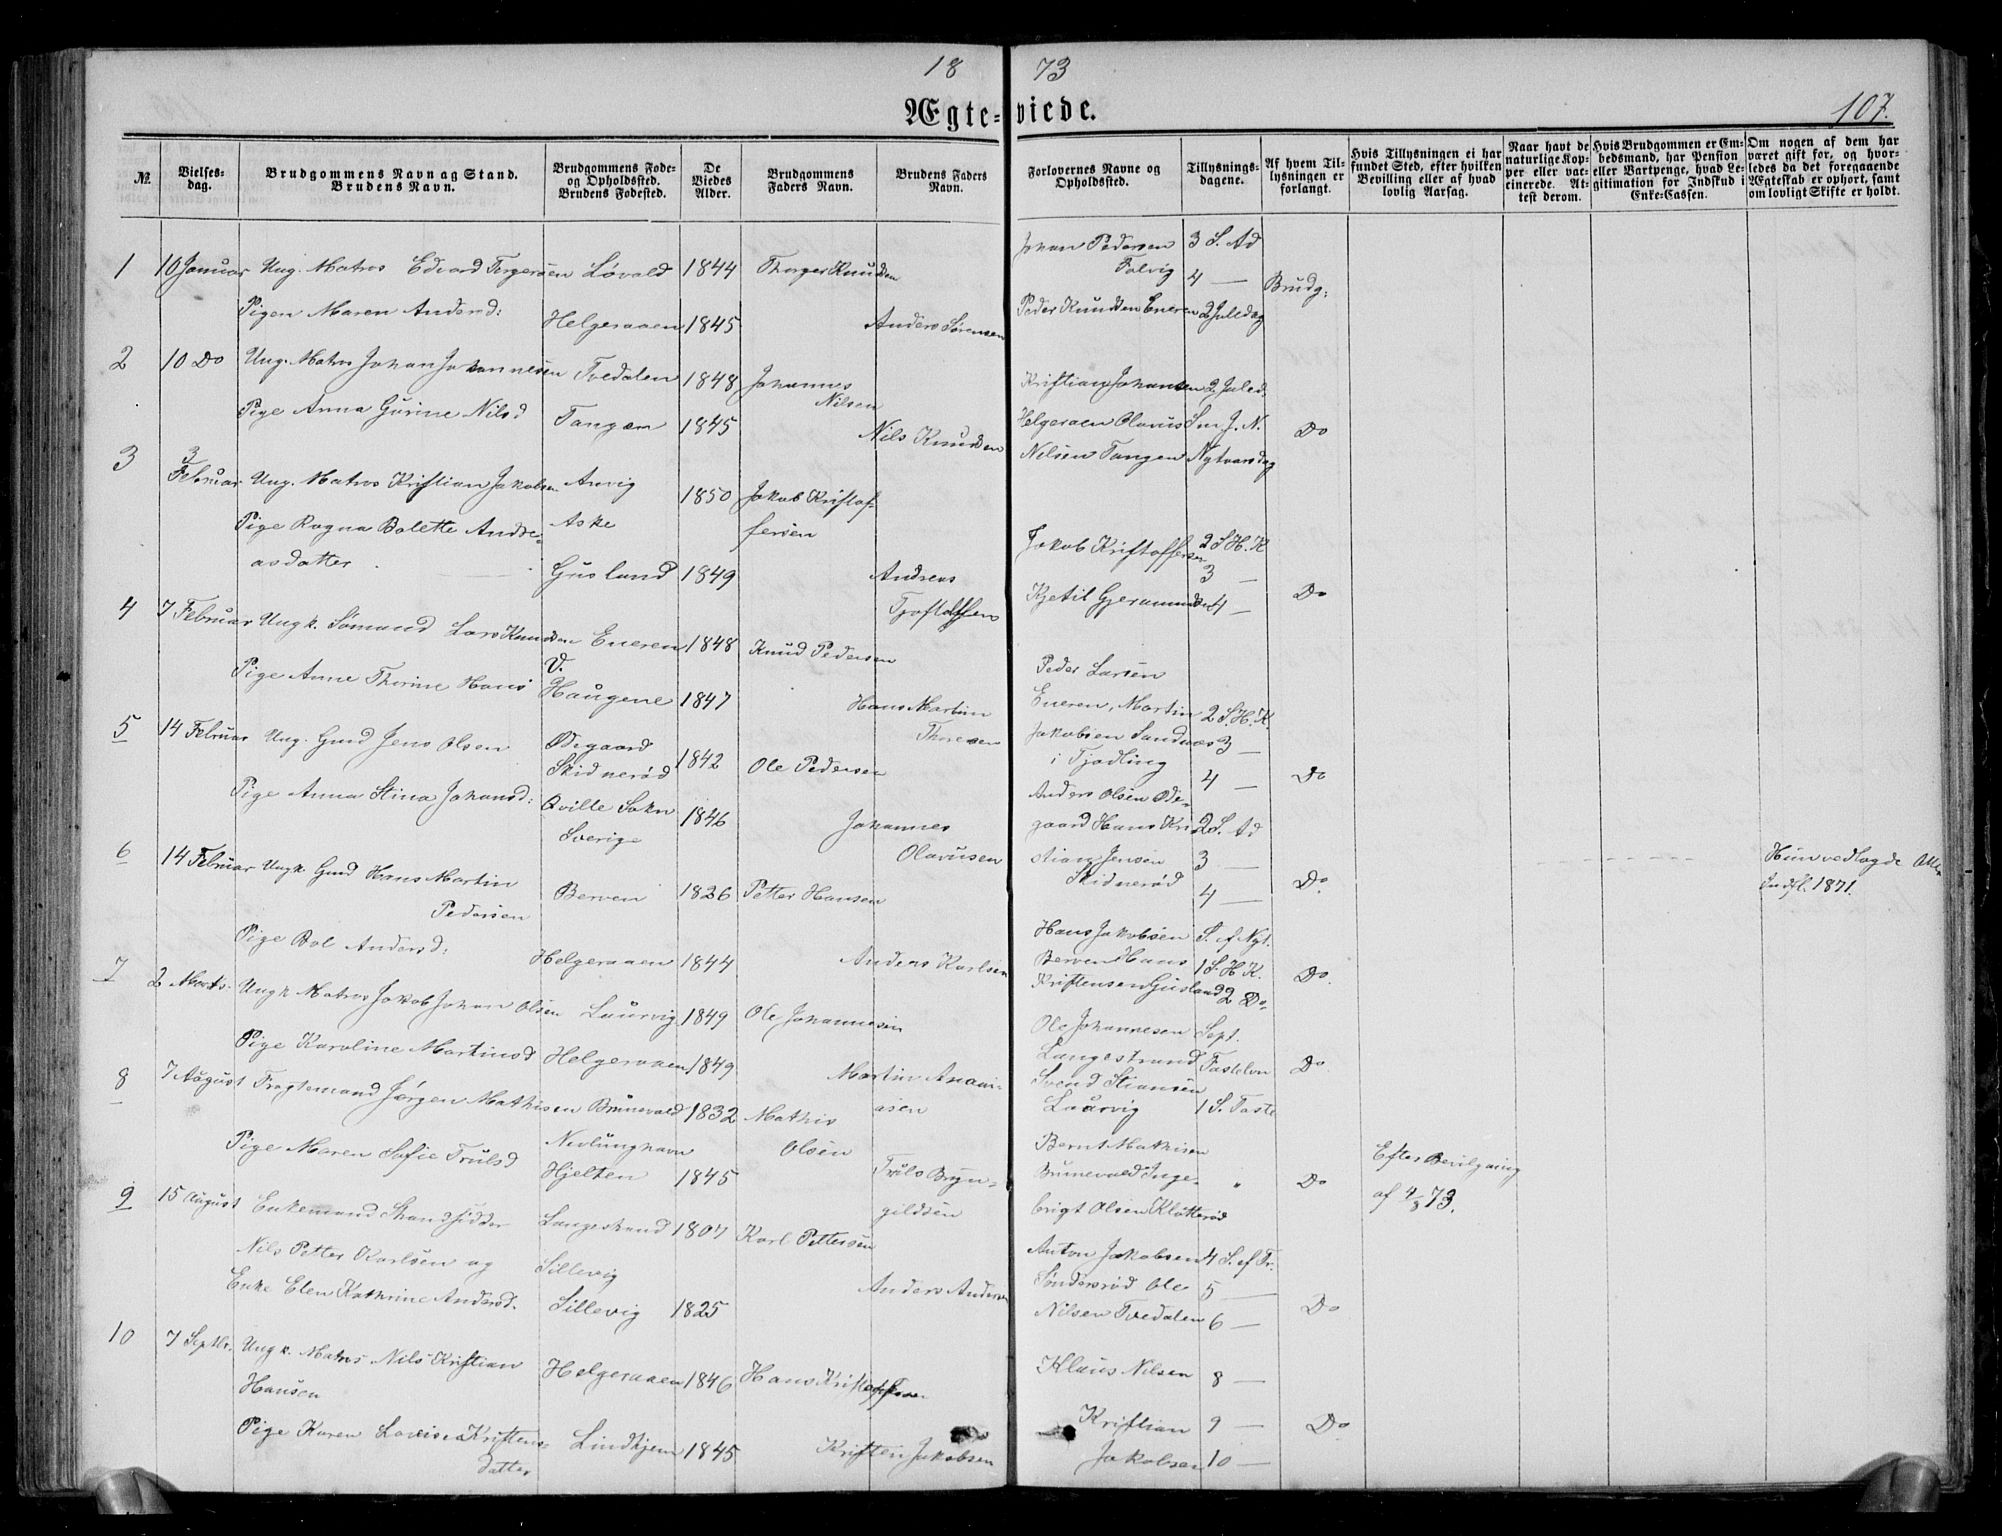 18 73
Ægte-viede.
107.
№.
Vielses-dag.
Brudgommens Navn ag Stand. Brudens Navn.
Brudgommens Føde- og Opholdssted. Brudens Fødested.
De Viedes Alder.
Brudgommens Faders Navn.
Brudens Faders Navn.
Forlovernes Navne og Opholdssted.
Tillysnings-dagene.
Af hvem Til-lysningen er forlangt.
Hvis Tillysningen ei har fundet Sted, efter hvilken Bevilling eller af hvad lovlig Aarsag.
Naar havt de naturlige Kop-per eller vac-cinerede. At-test derom.
Hvis Brudgommen er Em-bedsmand, har Pension eller Vartpenge, hvad Le-gitimation for Indskud i Enke-Cassen.
Om nogen af dem har været gift før, og hvor-ledes da det foregaaende Ægteskab er ophørt, samt om lovligt Skifte er holdt.
1 10 Januar Ung. Matros Edvard Torgersen Løvald 1844 Thorger Knudsen
Johan Pedersen 3 S. Ad
Folvig 4 — Brudg:
Pigen Maren Andersd: Helgeraaen 1845 Anders Sørensen
Peder Knudsen Eneren 2 Juledag
2 10 Do Ung. Matros Johan Johannesen Tvedalen 1848 Johannes Nilsen
Kristian Johansen 2 Juled.
Pige Anna Gurine Nilsd Tangen 1845 Nils Knudsen
Helgeraen Olavus S m J. N. Do
Nilsen Tangen Nytaarsdag
3 3 Februar Ung. Matros Kristian Jakobsen Arvig 1850 Jakob Kristof-
Pige Ragna Bolette Andre- Aske fersen
Jakob Kristoffersen 2 S. H. K
3 —
asdatter Gusland 1849 Andreas Tjostolfsen
Kjetil Gjermundsen 4 — Do
4 7 Februar Ungk. Sømand Lars Knudsen Eneren 1848 Knud Pedersen
V.
Pige Anne Thorine Hans Haugene 1847 Hans Martin Thoresen
Peder Larsen
Eneren, Martin 2 S. H. K.
Jakobsen Sandnæs 3 —
i Tjodling 4 — Do
5 14 Februar Ung. Gmd Jens Olsen Ødegaard
Skidnerød 1842 Ole Pedersen
Pige Anna Stina Johansd: Qville Sokn 1846 Johannes Olavusen
Sverige
Anders Olsen Øde-
gaard Hans Kri- 2 S. Ad
stian Jensen 3 —
Skidnerød 4 — Do.
Hun vedlagde Att
Indfl. 1871.
6 14 Februar Ungk. Gmd Hans Martin Pedersen Berven 1826 Petter Hansen
Pige Bol Andersd: Helgeraaen 1844 Anders Karlsen
Hans Jakobsen S. ef Nyt.
Berven Hans 1 S. H. K. Do.
Kristensen Gusland 2 Do.
7 2 Marts. Ungk Matros Jakob Johan Olsen Laurvig 1849 Ole Johannesen
Pige Karoline Martinsd Helgeraaen 1849 Martin Anani-asen
Ole Johannesen Sept.
Langestrand Fastelvn Do
Svend Stiansen
Laurvig 1 S. Faste
8 7 August Fragtemand Jørgen Mathisen Brunevald 1832 Mathis Olsen
Nevlunghavn
Pige Maren Sofie Trulsd Hjelten 1845 Truls Bryn-gildsen
Bernt Mathisen
Brunevald Inge- " Do
brigt Olsen Klåtterød
Efter Bevilgning
af 4/8 73.
9 15 August Enkemand Strandsidder Langestrand 1807 Karl Pettersen
Nils Petter Karlsen og Sillevig
Enke Elen Kathrine Andersd. Sillevig 1825 Anders Andersen
Anton Jakobsen 4 S. ef Tr.
Søndersrød Ole 5 —
Nilsen Tvedalen 6 — Do
10 7 Septbr. Ungk. Matros Nils Kristian Hansen Helgeraaen 1846 Hans Kristoffersen
Pige Karen Lovise Kristens-datter Lindhjem 1845 Kristen Jakobsen
Klaus Nilsen 8 —
Kristian 9 — Do
Jakobsen 10 —